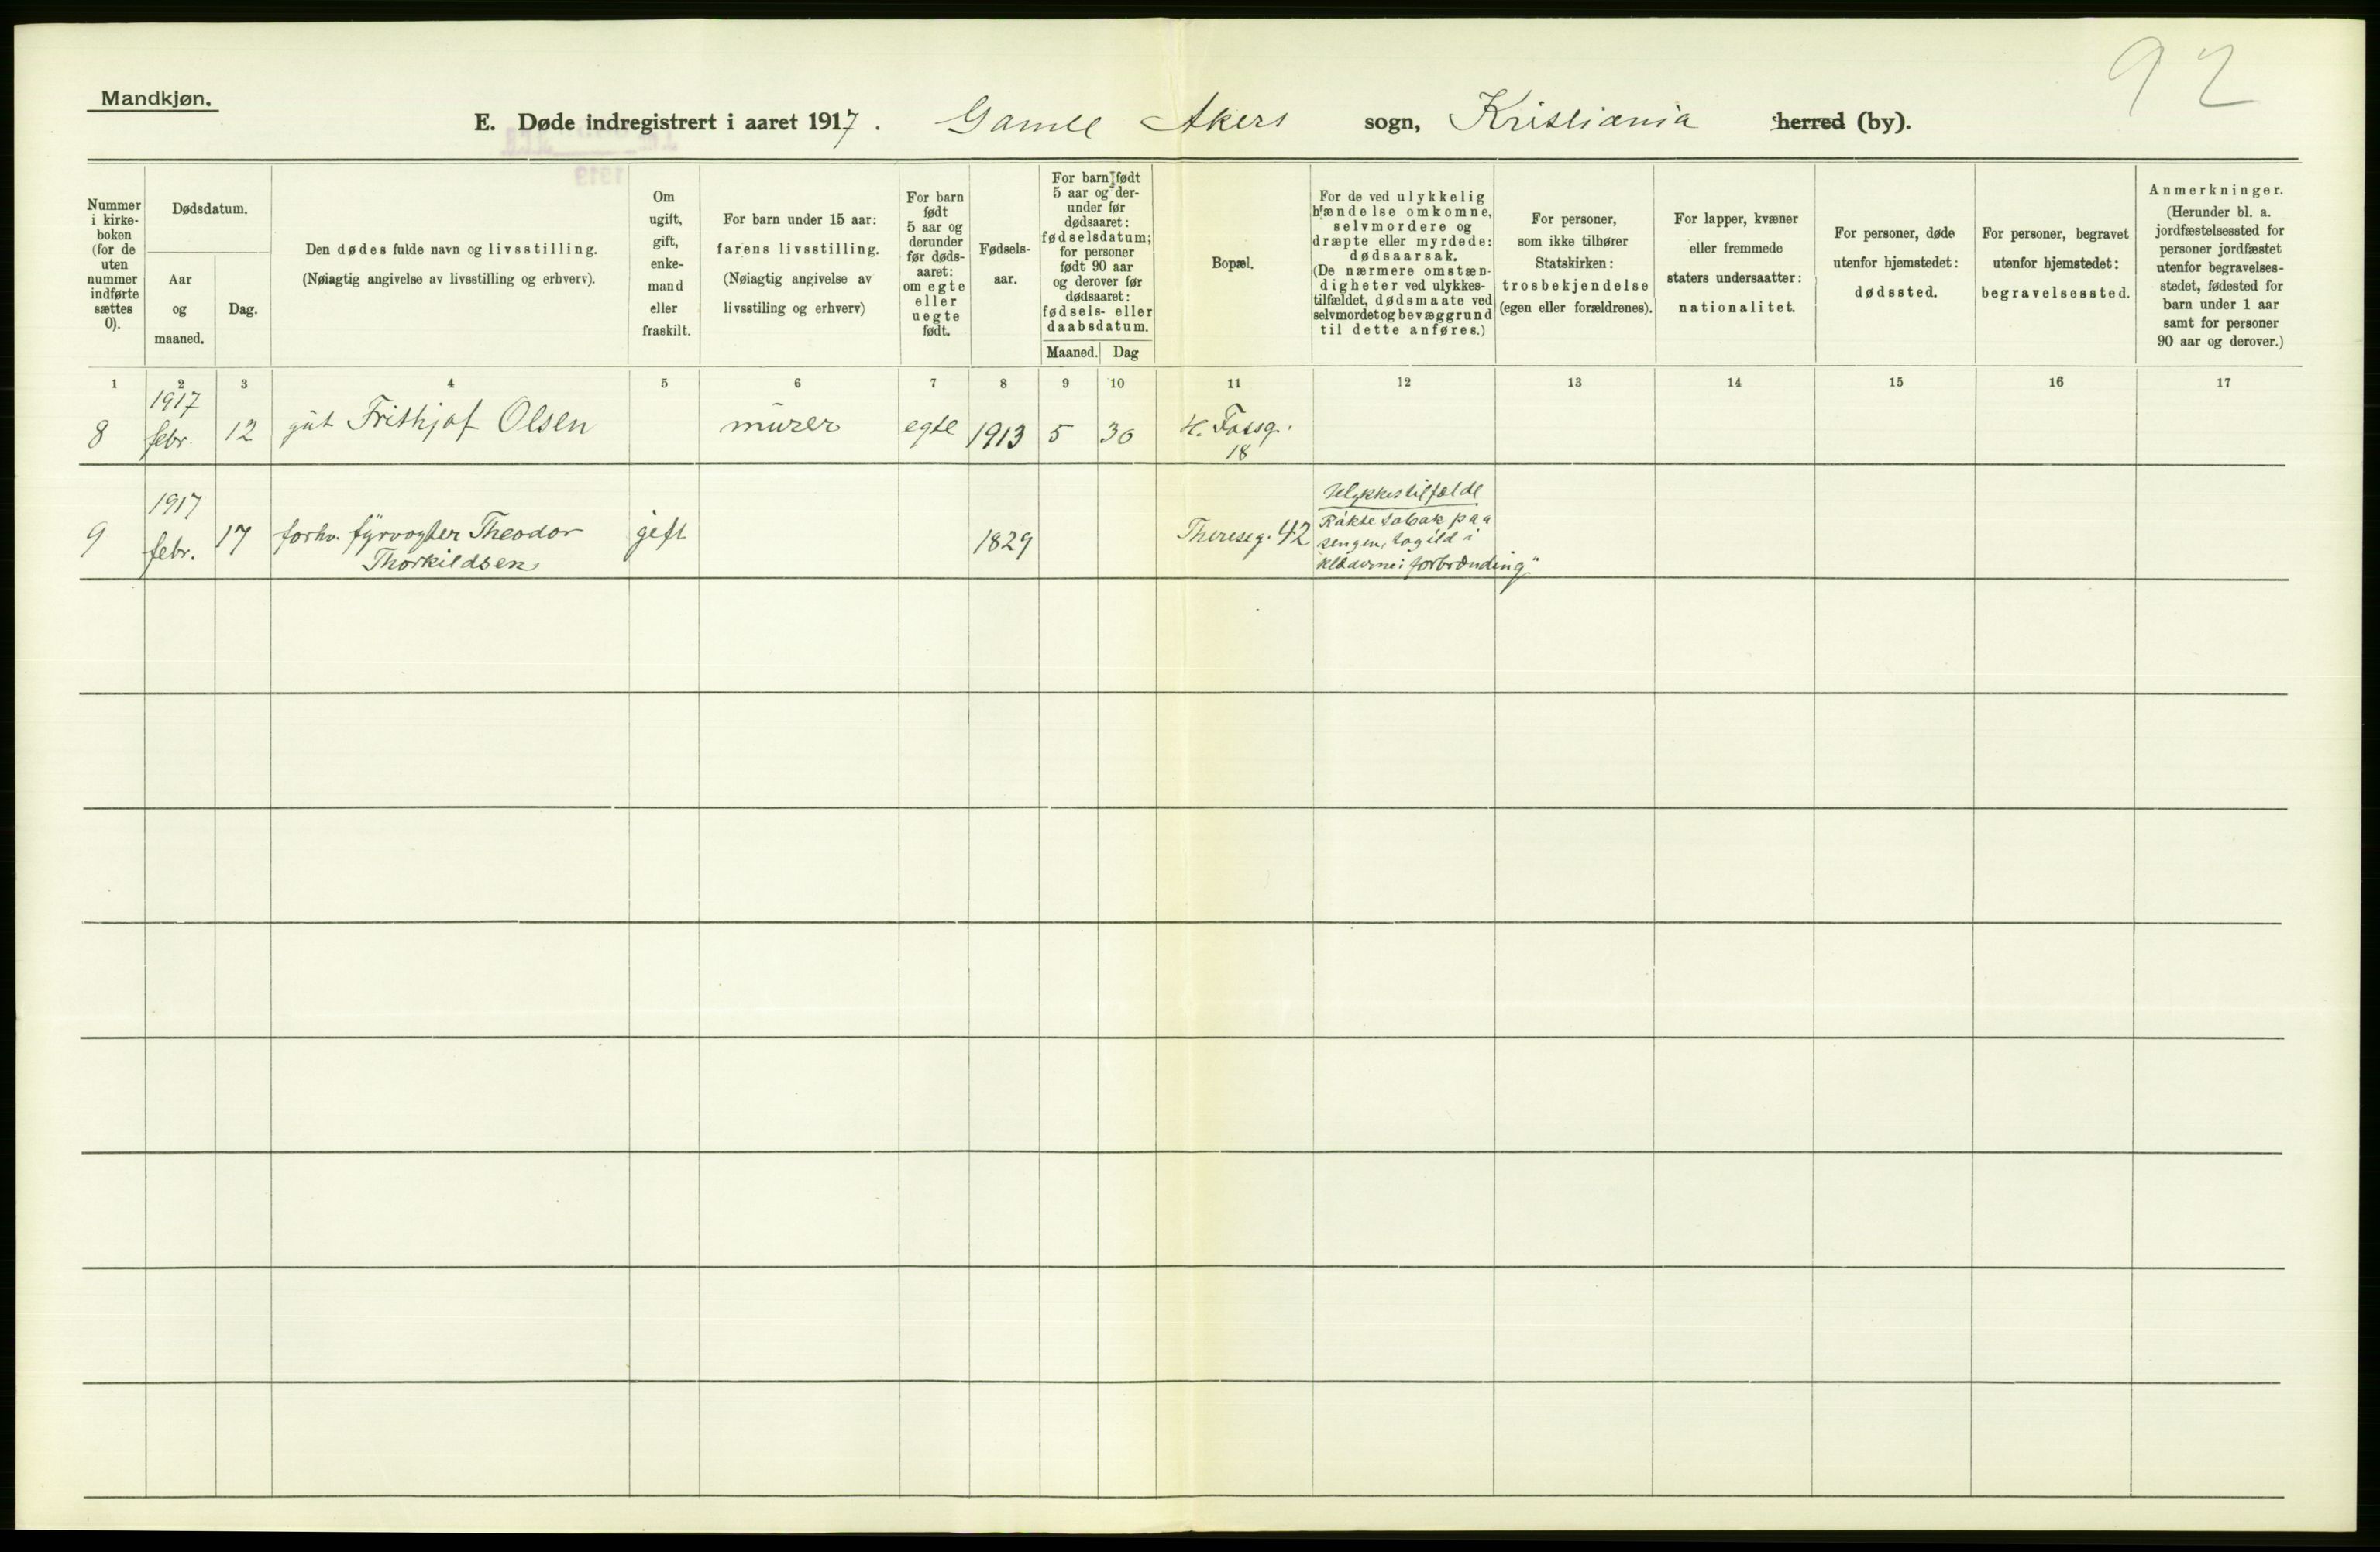 92
Mandkjøn.
E. Døde indregistrert i aaret 1917. Gamle Akers sogn, Kristiania herred (by).
Nummer i kirke-boken (for de uten nummer indførte sættes 0).
Dødsdatum.
Aar og maaned.
Dag.
Den dødes fulde navn og livsstilling.
(Nøiagtig angivelse av livsstilling og erhverv).
Om ugift, gift, enke-mand eller fraskilt.
For barn under 15 aar:
farens livsstilling.
(Nøiagtig angivelse av
livsstiling og erhverv)
For barn født 5 aar og derunder før døds-aaret: om egte eller uegte født.
Fødsels-aar.
For barn født 5 aar og der-under før dødsaaret: fødselsdatum; for personer født 90 aar og derover før dødsaaret: fødsels- eller daabsdatum.
Maaned. Dag
Bopæl.
For de ved ulykkelig hændelse omkomne, selvmordere og dræpte eller myrdede: dødsaarsak.
(De nærmere omstæn-digheter ved ulykkes-tilfældet, dødsmaate ved selvmordet og bevæggrund til dette anføres.)
For personer, som ikke tilhører Statskirken: trosbekjendelse (egen eller forældrenes).
For lapper, kvæner eller fremmede staters undersaatter: nationalitet.
For personer, døde utenfor hjemstedet: dødssted.
For personer, begravet utenfor hjemstedet: begravelsessted.
Anmerkninger.
(Herunder bl. a. jordfæstelsessted for personer jordfæstet utenfor begravelses-stedet, fødested for barn under 1 aar samt for personer 90 aar og derover.)
1 2 3 4 5 6 7 8 9 10 11 12 13 14 15 16 17
8 1917 febr. 12 gut Frithjof Olsen murer egte 1913 5 30 H. Fossg. 18
9 1917 febr. 17 forhv. fyrvogter Theodor Thorkildsen gift 1829 Thereseg. 42
Ulykkestilfælde
Røkte tobak paa
sengen, tog ild i
klæderne: forbrænding"